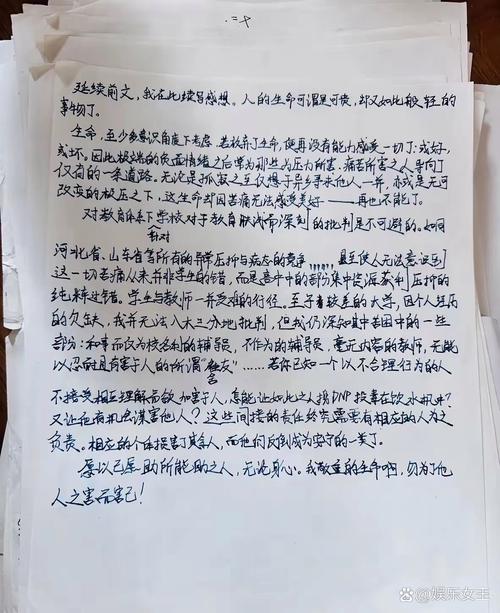 二、
延续前文，我在此续写感想。人的生命可谓是可贵，却又如此般轻的
事物了。
生命，至少多意识角度下考虑，若放弃了生命，便再没有能力感受一切了：或好，
或坏。因此极端的负面情绪之后常为那些为压力所害、痛苦所害之人导向了
仅有的一条道路。无论是孤寂之至仅想于异乡寻求他人一并，亦或是无可
改变的极压之下，这生命却因苦痛无法感受美好——再也不能了。
对教育体系下学校对于教育肤浅而深刻的批判是不可避的。如同
针对
河北省、山东省等所有的异常压抑与病态的竞争,,,,,,且至使人无法意识到
这一切苦痛从来书非学生的错，而是高中中的部份集中资源获利压抑的
纯粹过错。学生与教师一并受难的行径。至于有较差的大学，因个人经历
的欠缺，我并无法入木三分地批判，但我仍深知其中苦困中的一些
部分：和事而仅为核名利的辅导员，不作为的辅导员，毫无内容的教师，无能
以忍耐且有害于人的所谓“校友”……若你已知一个以不合理行为的人
害
不接受相互理解而欲加害于人，怎能让如此之人携DNP投毒在饮水机中？
又让他有机也谋害他人？这些间接的责任终究需要有相应的人为之
负责。相应的个体损害了其余人，而他们反倒成为安宁的一类了。
愿以己来助所能助之人，无论身心。我敬重的生命啊，勿为了他
人之害而害己！
@娱乐女王